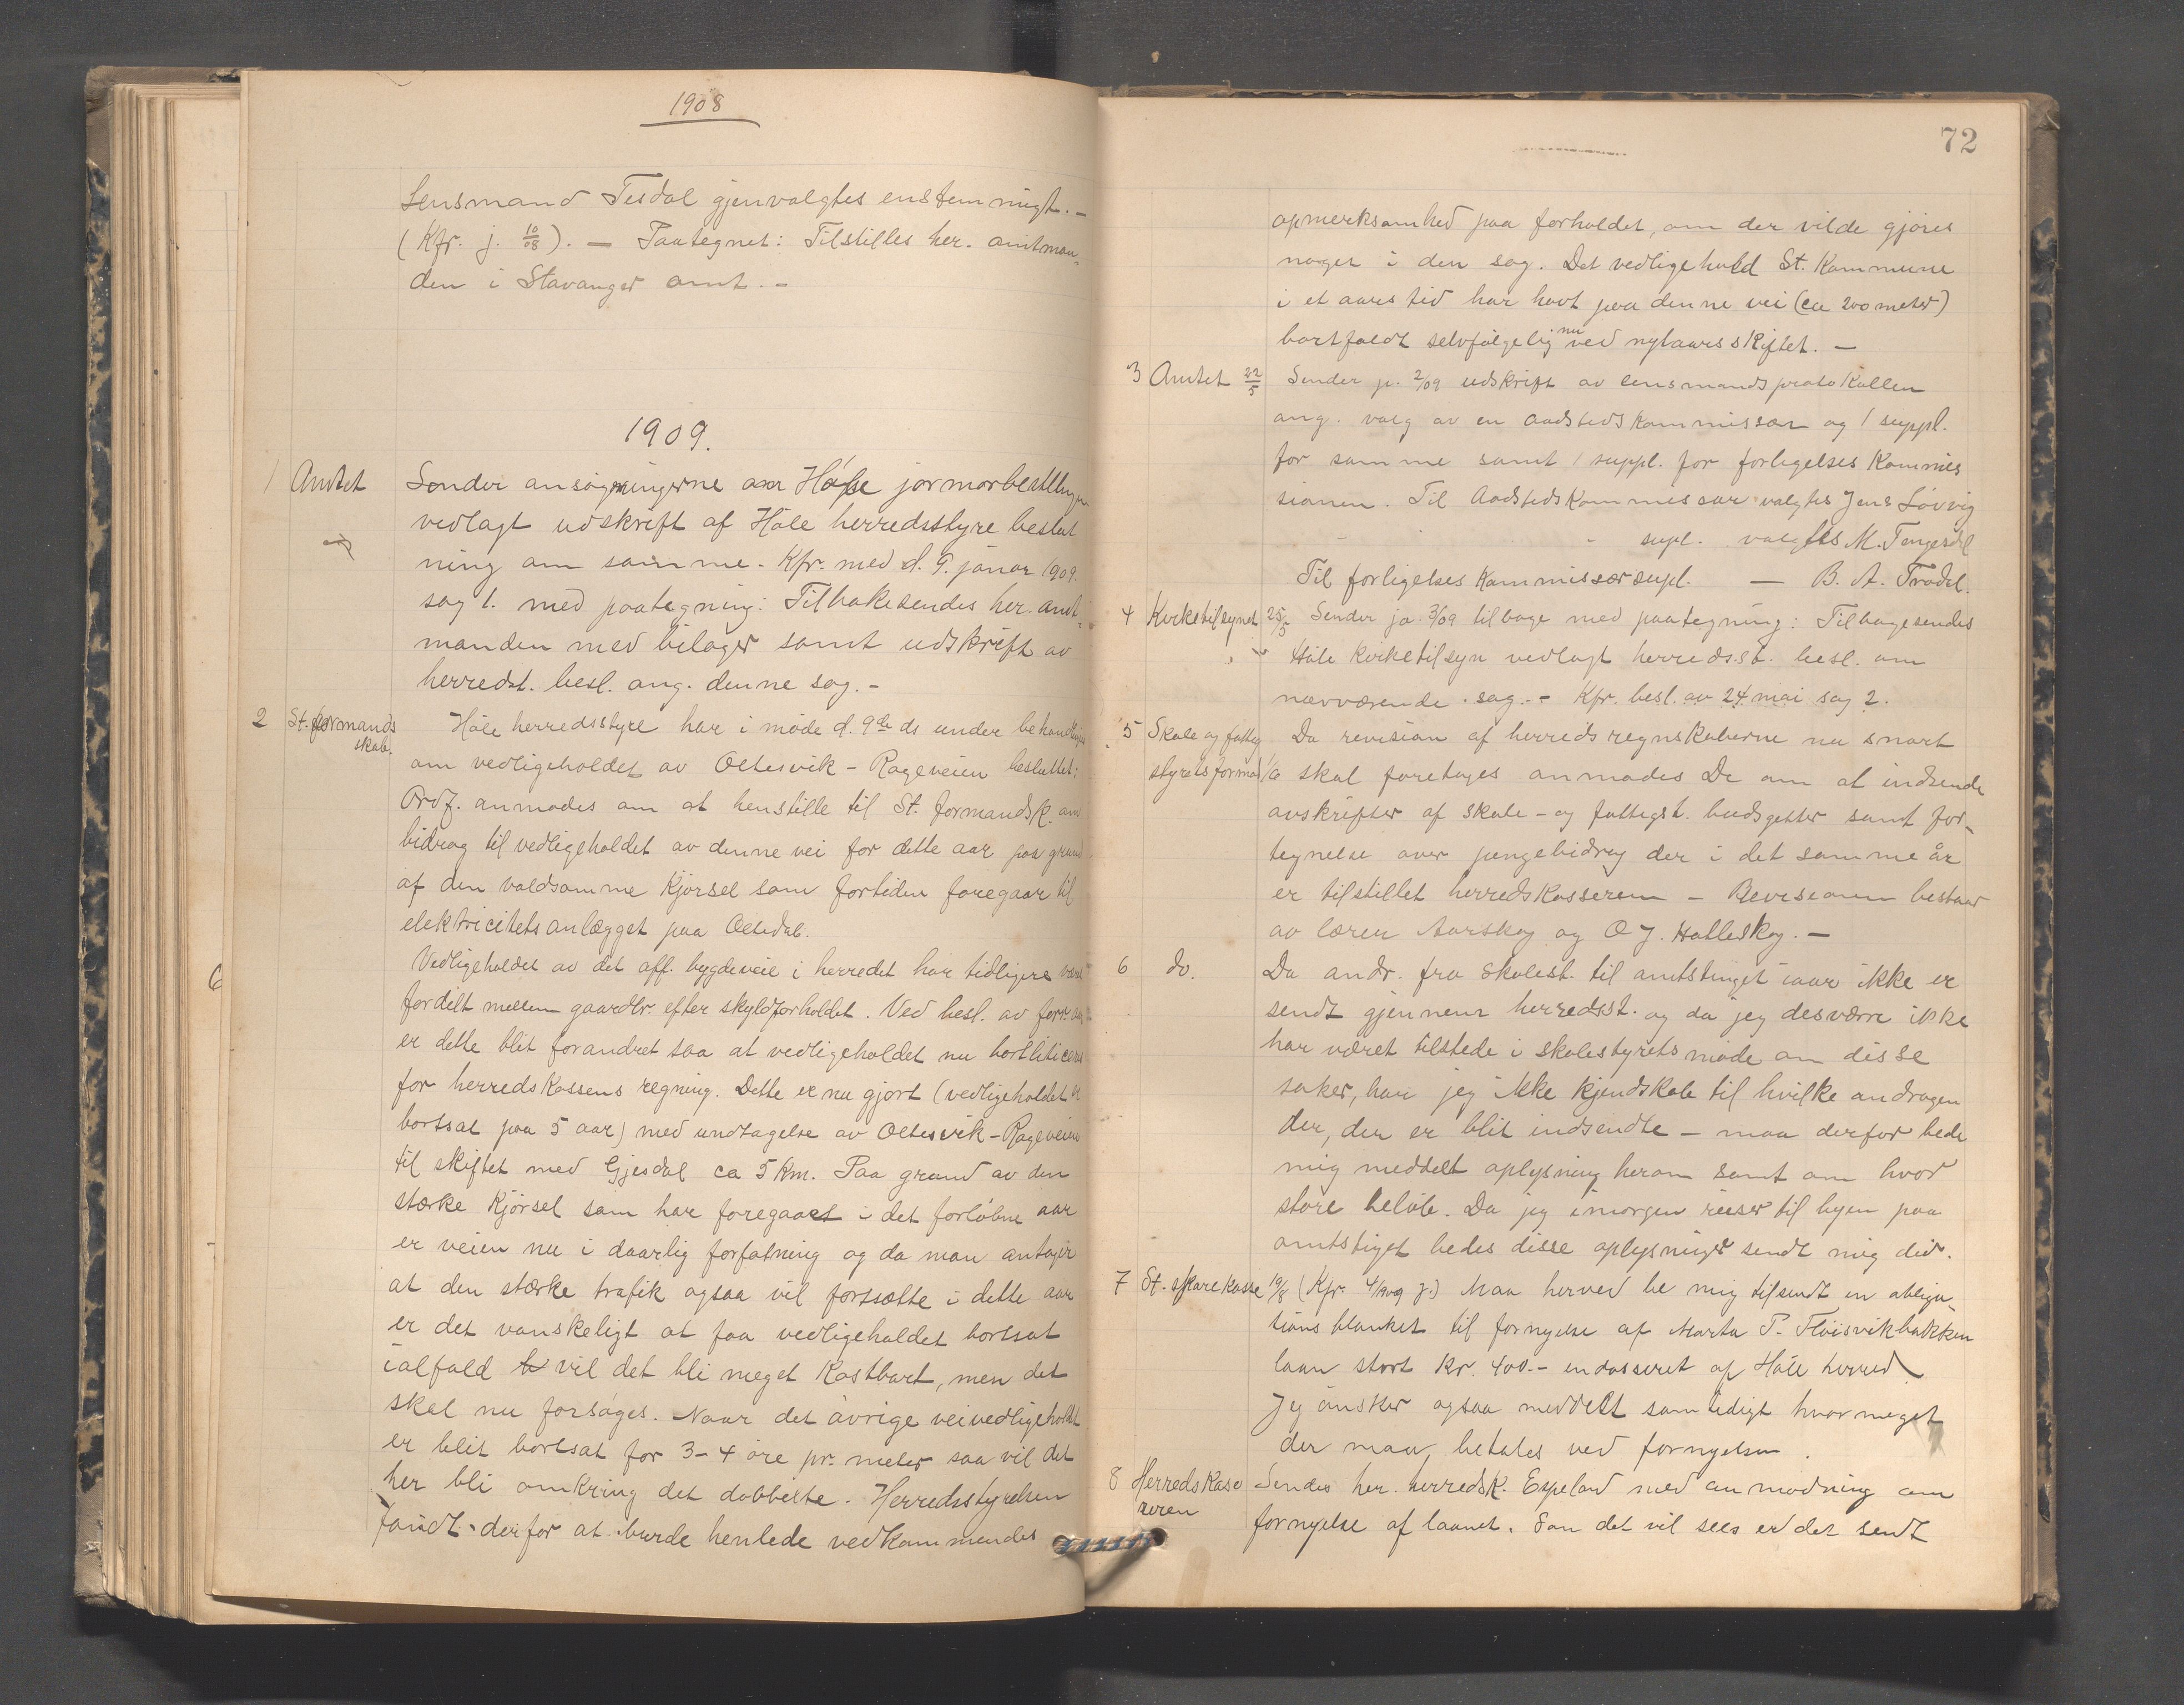 1908
Lensmand Tesdal gjenvalgtes enstemmigt. –
(Kfr. j. 10/08). – Paategnet: Tilstilles her. amtman-
den i Stavanger amt. –
1909.
1 Amtet Sender ansøgningerne om Høle jormorbestilling
vedlagt udskrift af Høle herredsstyre beslut
ning om samme. Kfr. med d. 9. januar 1909.
sag 1. med paategning: Tilbakesendes her. amt-
manden med bilager samt udskrift av
herredst. besl. ang. denne sag. –
2 St. formands Høle herredsstyre har i møde d. 9de ds under behandlingen
skab. om vedligeholdet av Oltesvik – Rageveien besluttet:
Ordf. anmodes om at henstille til St. formandsk. om
bidrag til vedligeholdet av denne vei for dette aar paa grund
af den voldsomme kjørsel som fortiden foregaar til
elektricitetsanlægget paa Oltedal.
Vedligeholdet av det off. bygdeveie i herredet har tidligere været
fordelt mellem gaardbr. efter skyldforholdet. Ved besl. av
er dette blit forandret saa at vedligeholdet nu bortliciteres
for herredskassens regning. Dette er nu gjort (vedligeholdet er
bortsat paa 5 aar) med undtagelse av Oltesvik – Rageveien
til skiftet med Gjesdal ca 5 km. Paa grund av den
stærke kjørsel som har foregaaet i det forløbne aar
er veien nu i daarlig forfatning og da man antager
at den stærke trafik ogsaa vil fortsætte i dette aar
er det vanskeligt at faa vedligeholdet bortsat
ialfald vil det bli meget kostbart, men det
skal nu forsøges. Naar det øvrige veivedligehold
er blit bortsat for 3–4 øre pr. meter saa vil det
her bli omkring det dobbelte. Herredsstyrelsen
fandt derfor at burde henlede vedkommendes
72
opmerksomhed paa forholdet, om der vilde gjøres
noget i den sag. Det vedligehold St. Kommune
i et aars tid har havt paa denne vei (ca 200 meter)
bortfaldt selvfølgelig nu ved nytaarsskiftet. –
3 Amtet 22/5 Sender j. 2/09 udskrift av lensmandsprotokollen
ang. valg av en aadstedskommissær og 1 suppl.
for samme samt 1 suppl. for forligelses kommis
sionen. Til Aadstedskommissær valgtes Jens Løvvig
- - supl. valgtes M. Tengesdal
Til forligelseskommissærsupl. — B. A. Tradel.
4 Kirketilsynet 25/5 Sender ja 3/09 tilbage med paategning: Tilbagesendes
Høle kirketilsyn vedlagt herreds.st. besl. om
nævværende sag. – Kfr. besl. av 24 mai sag 2.
5 Skole og fattig Da revision af herredsregnskaberne nu snart
styrets formad skal foretages anmodes De om at indsende
avskrifter af skole- og fattigst. budsgetter samt for-
tegnelse over pengebidrag der i det samme år
er tilstillet herredskasseren – Revisionen bestaar
av lærer Aarskog og O J. Halleskog. –
6 do. Da andr. fra skolest. til amtstinget iaar ikke er
sendt gjennem herredsst. og da jeg desværre ikke
har været tilstede i skolestyrets møde om disse
saker, har jeg ikke kjendskab til hvilke andragen
der, der er blit indsendte – maa derfor bede
mig meddelt oplysning herom samt om hvor
store beløb. Da jeg imorgen reiser til byen paa
amtstiget bedes disse oplysninger sendt mig did.
7 St. sparekasse 19/8 (Kfr. 4/1909 j.) Maa herved be mig tilsendt en obliga-
tions blanket til fornyelse af Marta P. Fløisvikbakken
laan stort kr. 400.– endosseret af Høle herred.
Jeg ønsker ogsaa meddelt samtidigt hvor meget
der maa betales ved fornyelsen.
8 Herredskasse Sendes her. herredsk. Espeland med anmodning om
reren fornyelse af laanet. Som det vil sees er det sendt